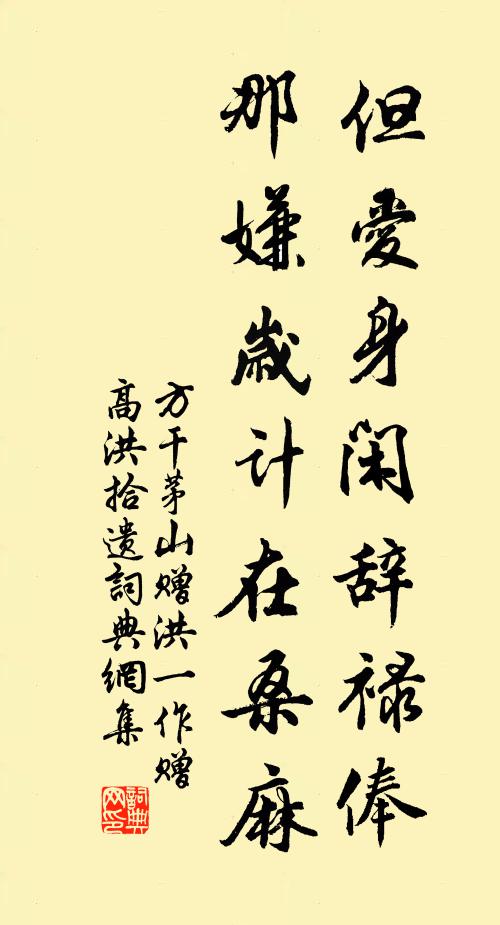 但愛身閑辞禄俸
那嫌歲计在桑麻
方干茅山赠洪一作赠
高洪拾遗詞典網集
詞典
网印